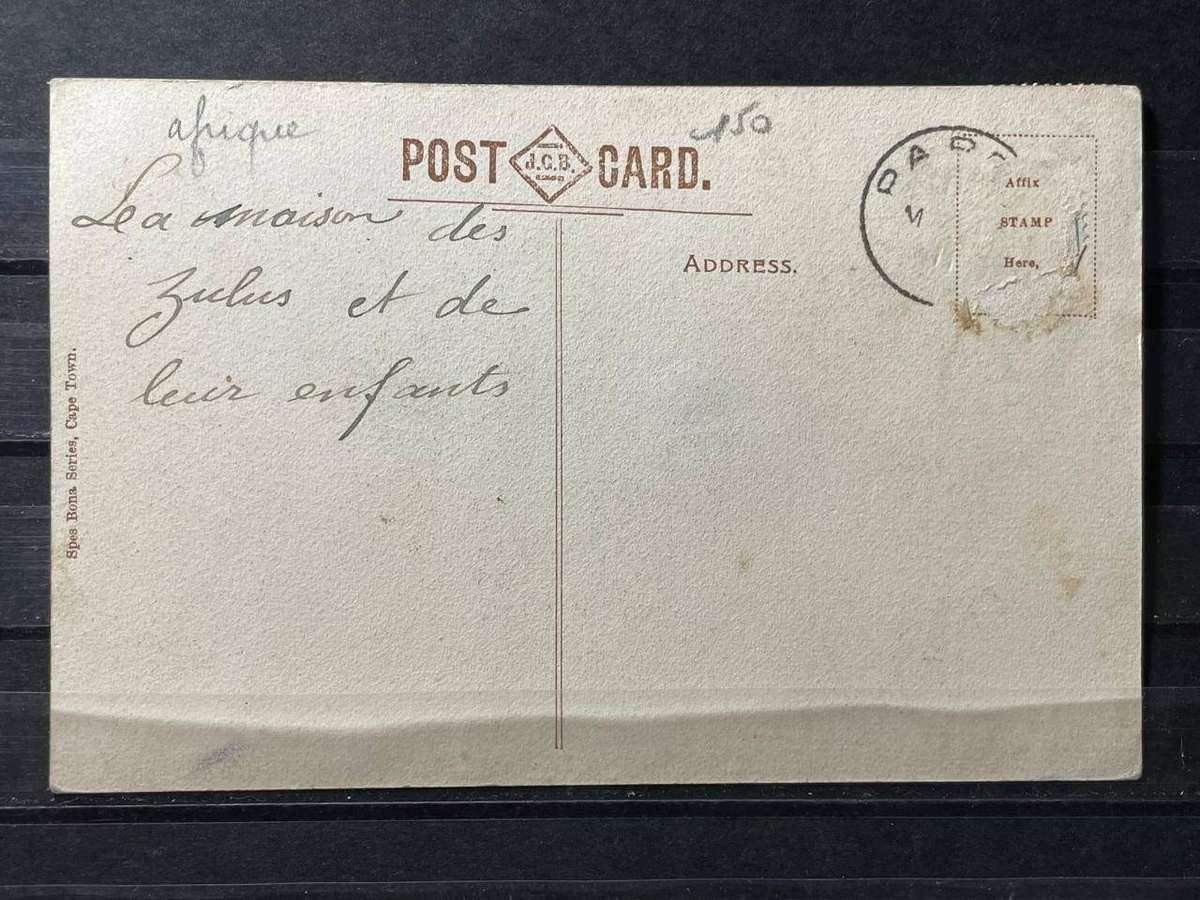 afrique
150
POST J.C.B. CARD.
La maison des
zulus et de
leur enfants
ADDRESS.
Affix
STAMP
Here,
Spes Bona Series, Cape Town.